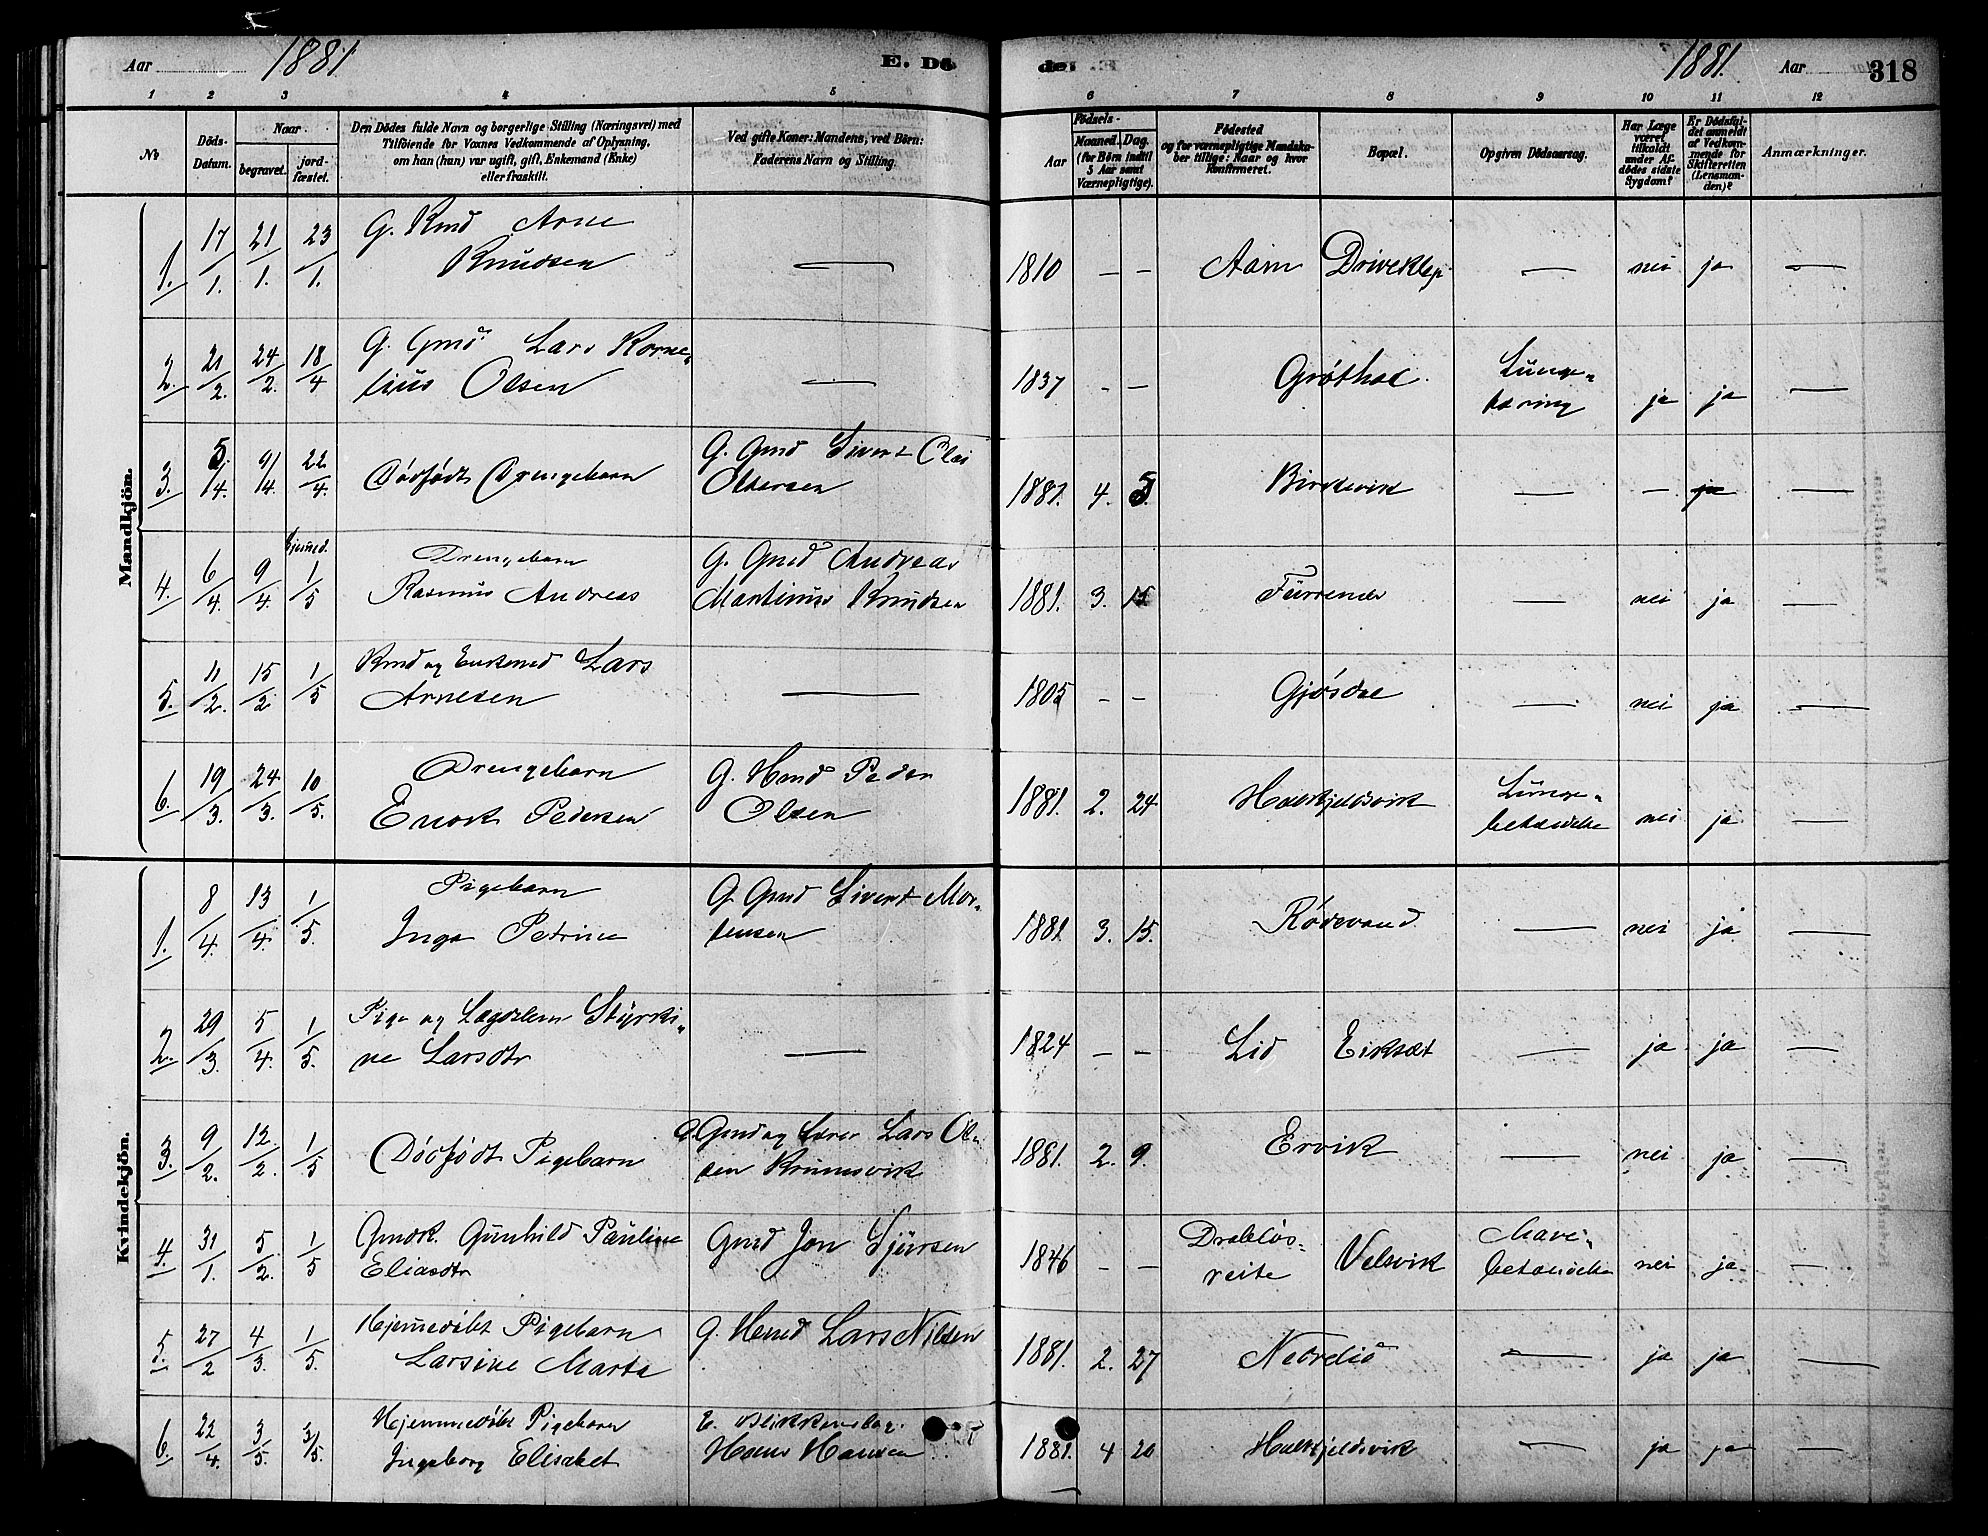 Aar 1881 E. Dö
de: 1881. Aar 318
1 2 3 4 5 6 7 8 9 10 11 12
No
Döds-Datum.
Naar
begravet.
jord-fæstet.
Den Dödes fulde Navn og borgerlige Stilling (Næringsvei) med
Tilföiende for Voxnes Vedkommende af Oplysning,
om han (hun) var ugift, gift, Enkemand (Enke)
eller fraskilt.
Ved gifte Koner: Mandens, ved Börn:
Faderens Navn og Stilling.
Födsels-
Aar
Maaned. Dag.
(for Börn indtil
5 Aar samt
Værnepligtige).
Födested
og for værnepligtige Mandska-
ber tillige: Naar og hvor
Konfirmeret.
Bopæl.
Opgiven Dödsaarsag.
Har Læge
været
tilkaldt
under Af-
dödes sidste
Sygdom?
Er Dödsfal-
det anmeldt
af Vedkom-
mende for
Skifteretten
(Lensman-
den)?
Anmærkninger.
Mandkjön.
1. 17/1. 21/1. 23/1. G. Kmd Arne
Knudsen — 1810 — — Aam Driveklep — nei ja —
2. 21/2. 24/2. 18/4 G. Gmd Lars Korne-
lius Olsen — 1837 — — Grøthol. Lunge-
tæring ja ja —
3. 5/4. 9/4. 22/4. Dødfødt Drengebarn G. Gmd Sivert Olai
Oldersen 1881. 4. 5. Birkevik — — ja
4. 6/4. 9/4. hjemmed. 1/5 Drengebarn
Rasmus Andreas G. Gmd Andreas
Martinus Knudsen 1881. 3. 15 Furrenes — nei ja —
5. 11/2. 15/2 1/5 Kmd og Enkemd Lars
Arnesen — 1805 — — Gjøsdal — nei ja —
6. 19/3. 24/3. 10/5. Drengebarn
Enok Pedersen G. Hmd Peder
Olsen 1881. 2. 24 Halkjeldsvik Lunge-
betændelse nei ja —
Kvindekjön.
1. 8/4. 13/4. 1/5. Pigebarn
Inga Petrine G. Gmd Sivert Mor-
tensen 1881 3. 15. Rødevand — nei ja —
2. 29/3. 5/4. 1/5. Pige og Lægdslem Styrki-
ne Larsdtr — 1824 — — Lid Eiksæt — ja ja —
3. 9/2. 12/2. 1/5 Dødfødt Pigebarn G. Gmd og Lærer Lars Ol-
sen Krumsvik 1881. 2. 9. Ervik — nei ja —
4. 31/1. 5/2. 1/5 Gmdk. Gunhild Pauline
Eliasdtr Gmd Jon Sjursen 1846 — — Drabløs-
reite Velsvik Mave-
betændelse nei ja —
5. 27/2 4/3. 1/5. Hjemmedøbt Pigebarn
Larsine Marta G. Hmd Lars Nilsen 1881. 2. 27 Nedrelid — ja ja —
6. 22/4. 3/5. 3/5. Hjemmedøbt Pigebarn
Ingeborg Elisabet E. Blikkenslag.
Hans Hansen 1881. 4 20 Halkjeldsvik — ja ja —